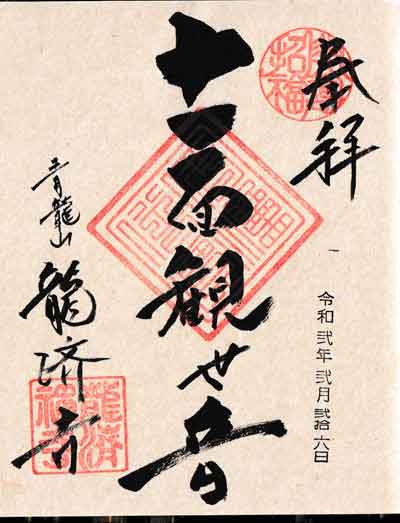 奉拝
令和弐年弐月弐拾六日
十一面観世音
青龍山
龍済寺
龍済禅寺